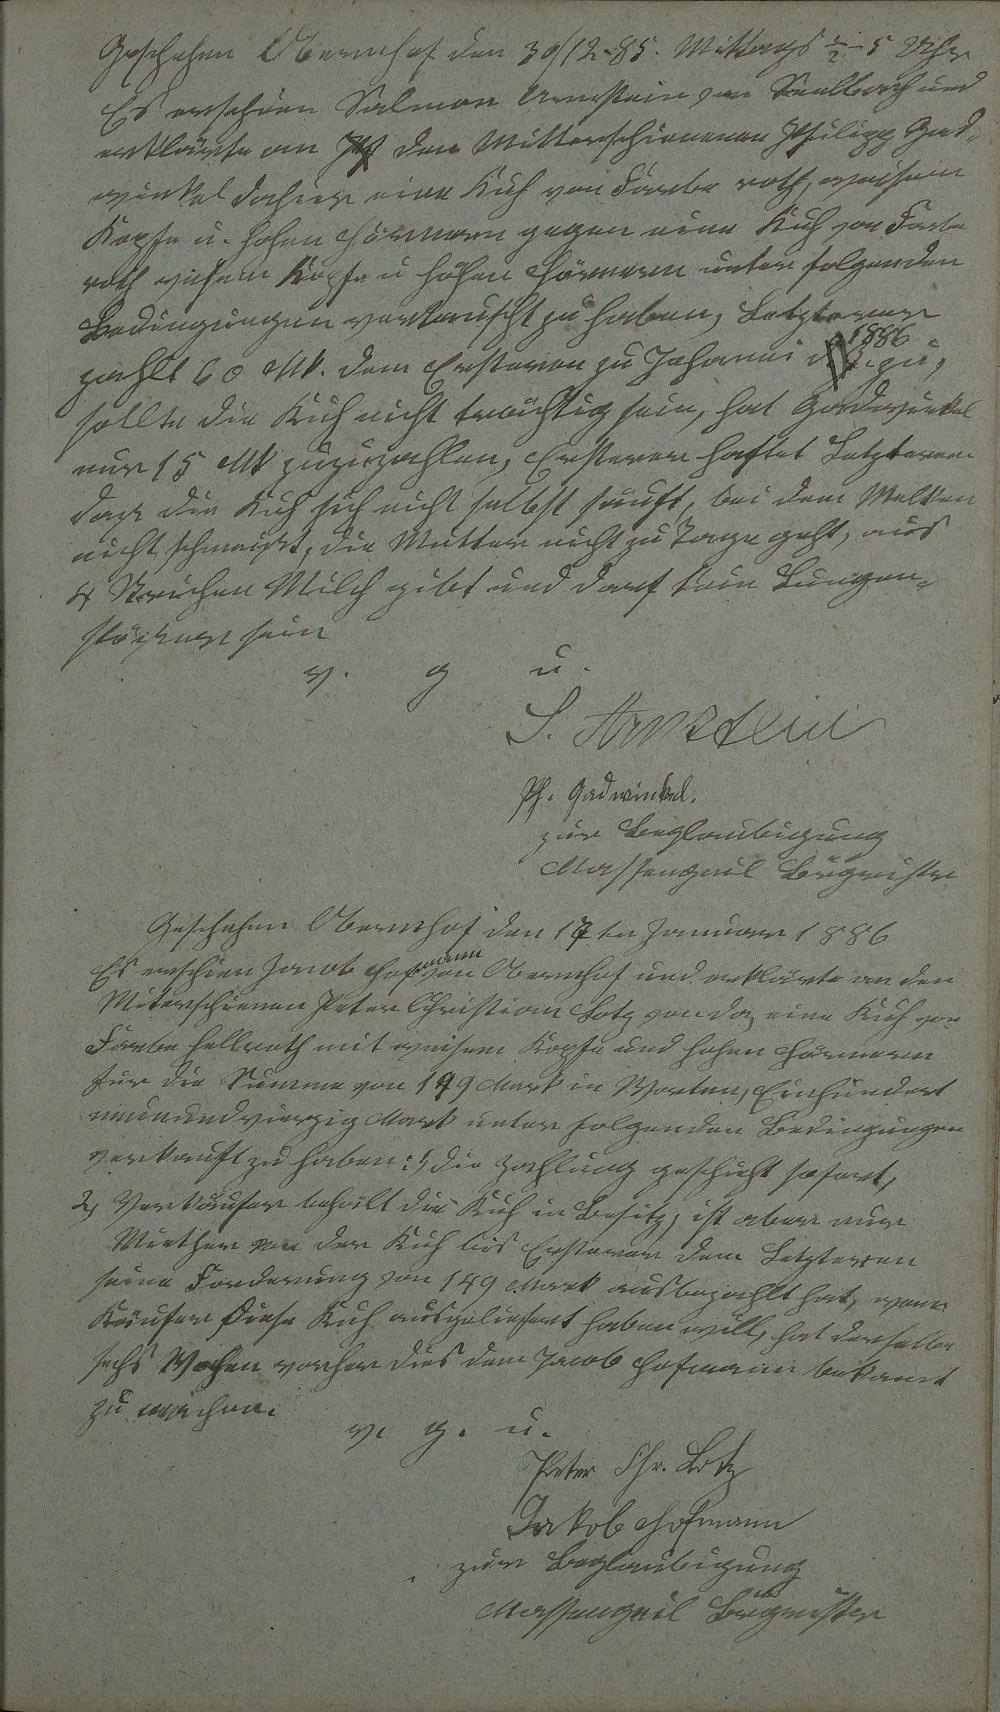 Geschehen Obernhof den 30/12-85. Mittags ½-5 Uhr
Es erschien Salmon Arnstein von Seelbach und
erklärte an den Mitterschienenen Philipp Gad-
winkel dahier eine Kuh von Farbe roth, weisem
Kopfe u. hohen Hörnern gegen eine Kuh von Farbe
roth weisem Kopfe u hohen Hörnern unter folgenden
Bedingungen vertauscht zu haben, Letzterer
zahlt 60 Mk. dem Ersteren zu Johanni 1886 zu,
sollte die Kuh nicht trächtig sein, hat Gadwinkel
nur 15 Mk zuzuzahlen, Ersterer haftet Letzterem
daß die Kuh sich nicht selbst sauft, bei dem Melken
nicht schmeißt, die Mutter nicht zu Tage geht, aus
4 Strichen Milch gibt und darf kein Lungen-
stößer sein
v. g u.
S. Arnstein
Ph. Gadwinkel.
zur Beglaubigung
Massengeil Bürgmeister
Geschehen Obernhof den 17ten Januar 1886
Es erschien Jacob Hofmann von Obernhof und erklärte an den
Miterschienen Peter Christian Lotz von da, eine Kuh von
Farbe hellroth mit weisem Kopfe und hohen Hörnern
für die Summe von 149 Mark in Worten, Einhundert
neunundvierzig Mark unter folgenden Bedingungen
verkauft zu haben: 1, die Zahlung geschieht sofort,
2, Verkäufer behält die Kuh in Besitz, ist aber nur
Miether von der Kuh bis Ersterer dem Letzteren
seine Forderung von 149 Mark ausbezahlt hat, wenn
Käufer diese Kuh ausgeliefert haben will, hat derselbe
sechs Wochen vorher dies dem Jacob Hofmann bekannt
zu machen.
v. g. u.
Peter Chr. Lotz
Jakob Hofmann
zur Beglaubigung
Massengeil Bürgmeister